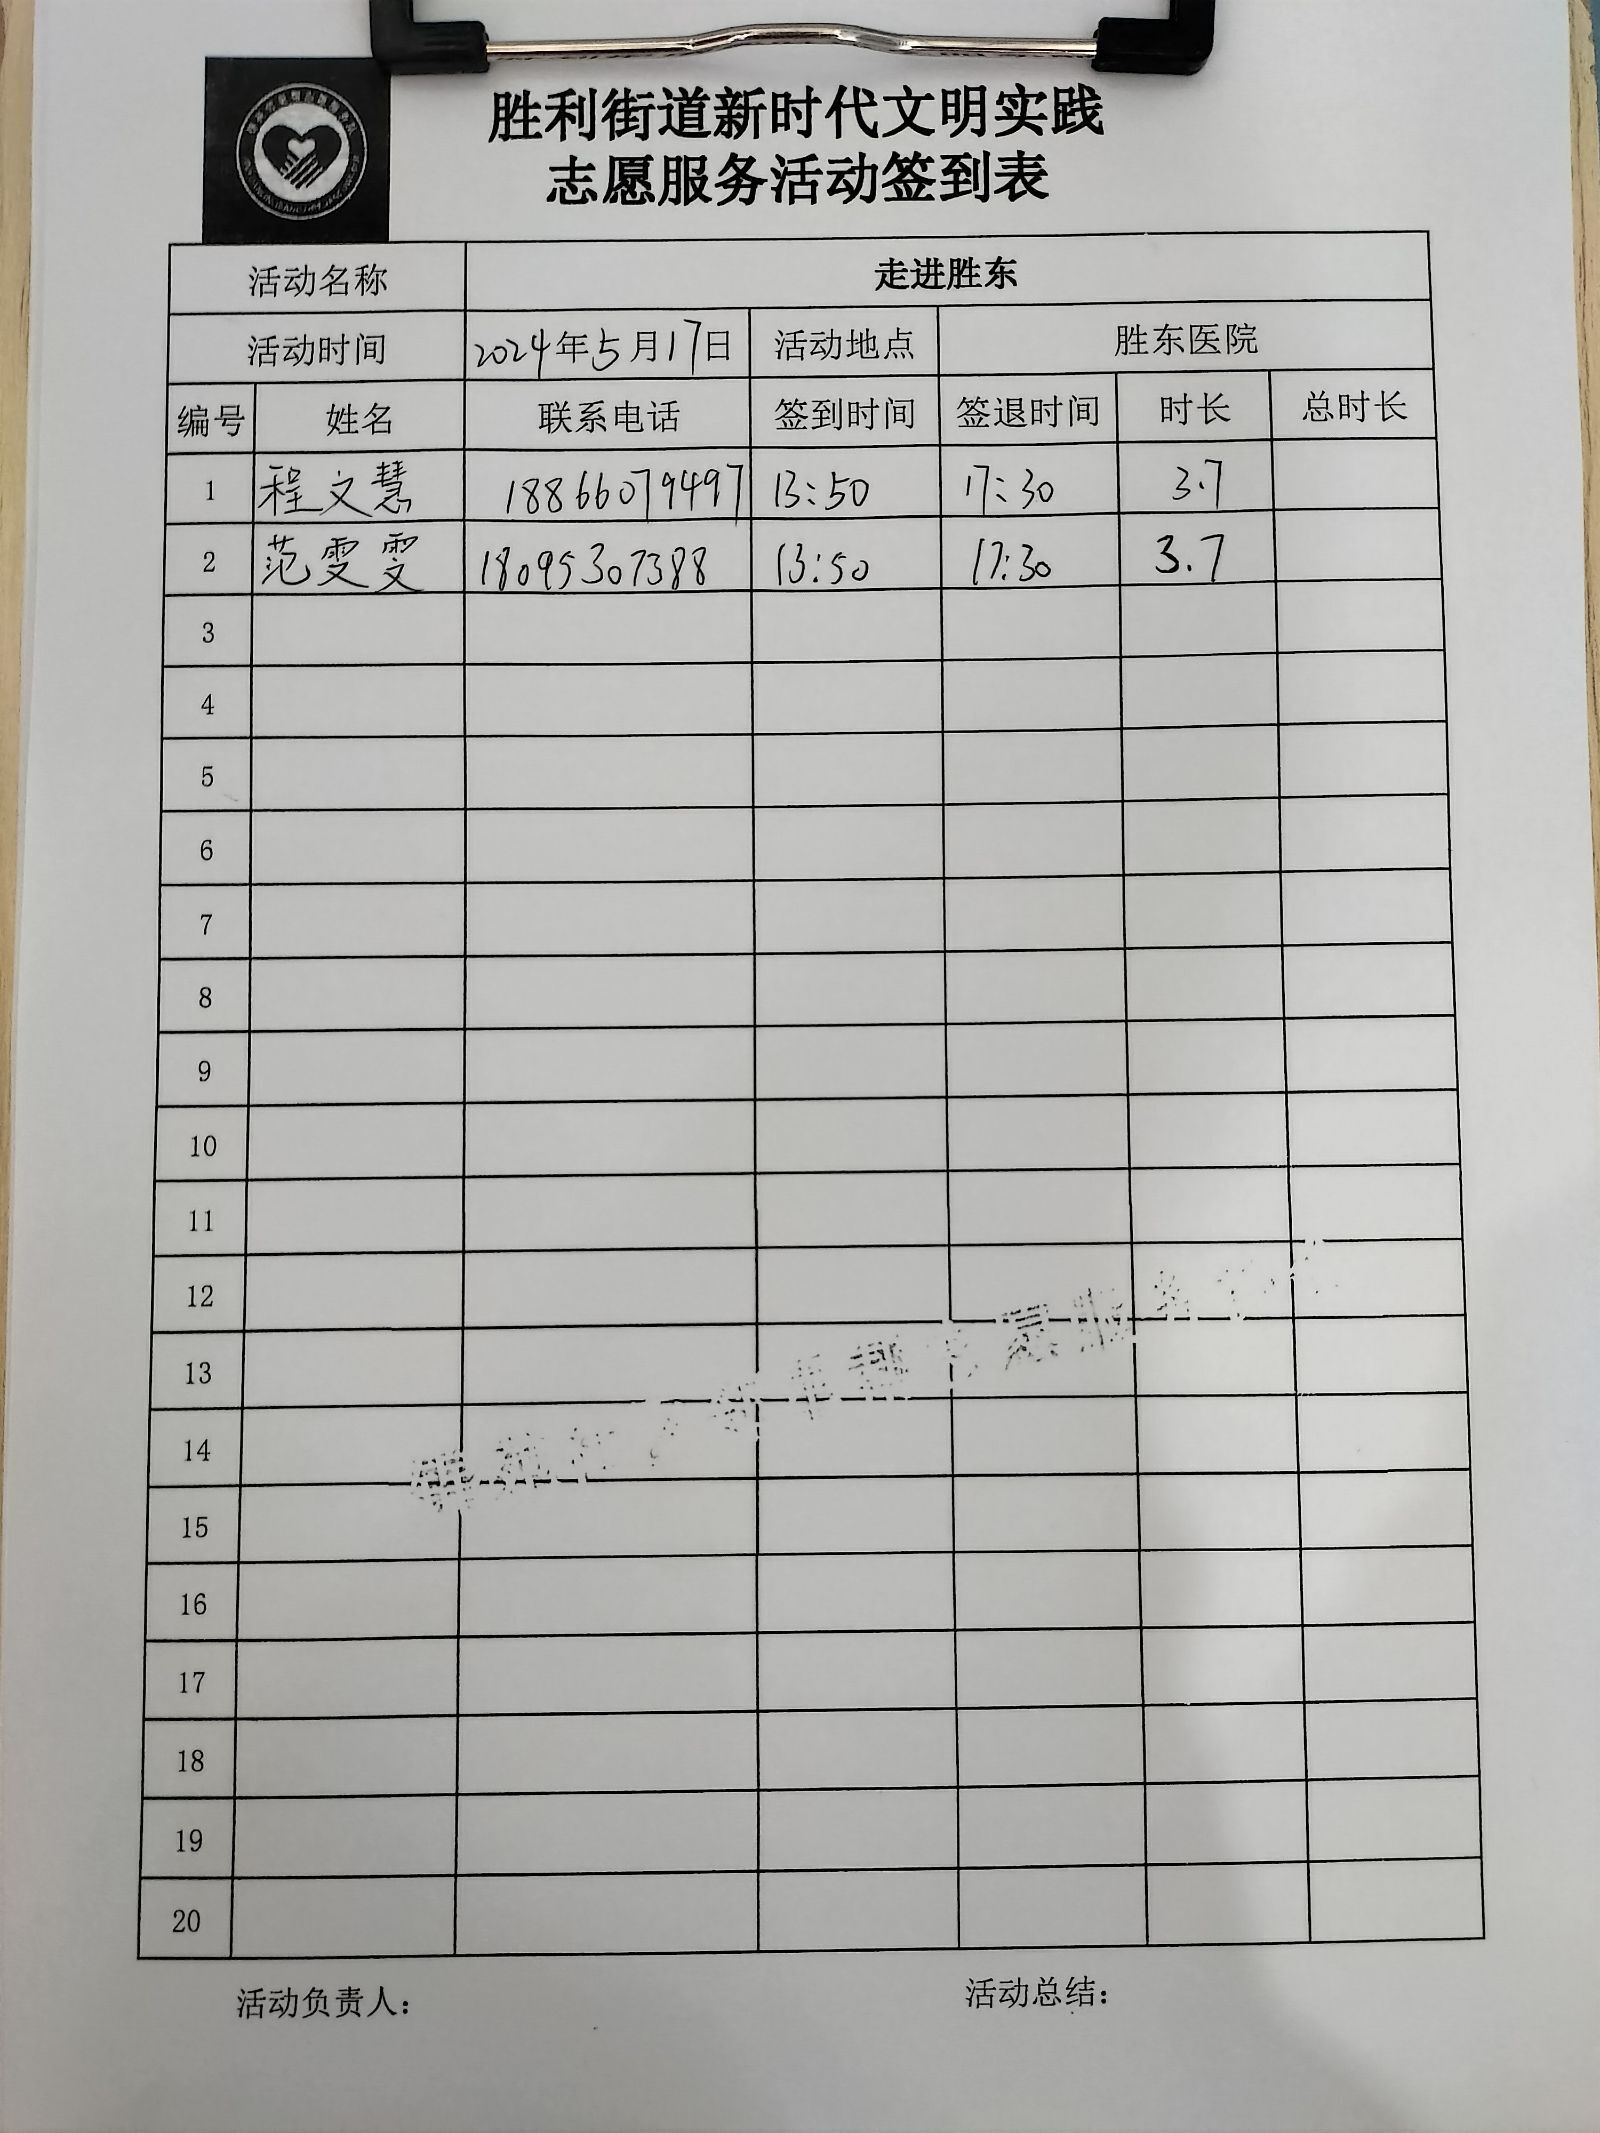 胜利街道新时代文明实践
志愿服务活动签到表
活动名称 走进胜东
活动时间 2024年5月17日 活动地点 胜东医院
编号 姓名 联系电话 签到时间 签退时间 时长 总时长
1 程文慧 18866079497 13:50 17:30 3.7
2 范雯雯 18095307388 13:50 17:30 3.7
3
4
5
6
7
8
9
10
11
12
13
14
15
16
17
18
19
20
活动负责人： 活动总结：